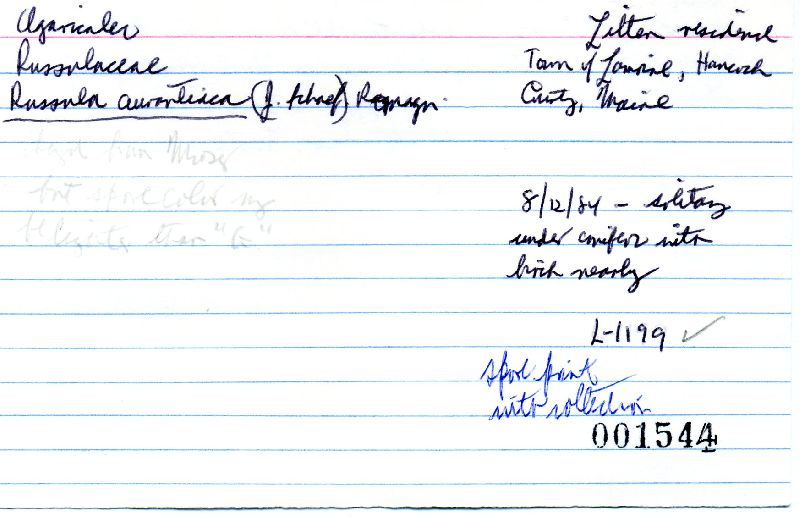 Agaricales
Russulaceae
Russula aurantiaca (J. Schaef) Romagn.
keyed from Moser
but spore color may
be lighter than "G"
Litten residence
Town of Lamoine, Hancock
County, Maine
8/12/84 - solitary
under conifers with
birch nearby
L-1199 ✓
spore print
with collection
001544